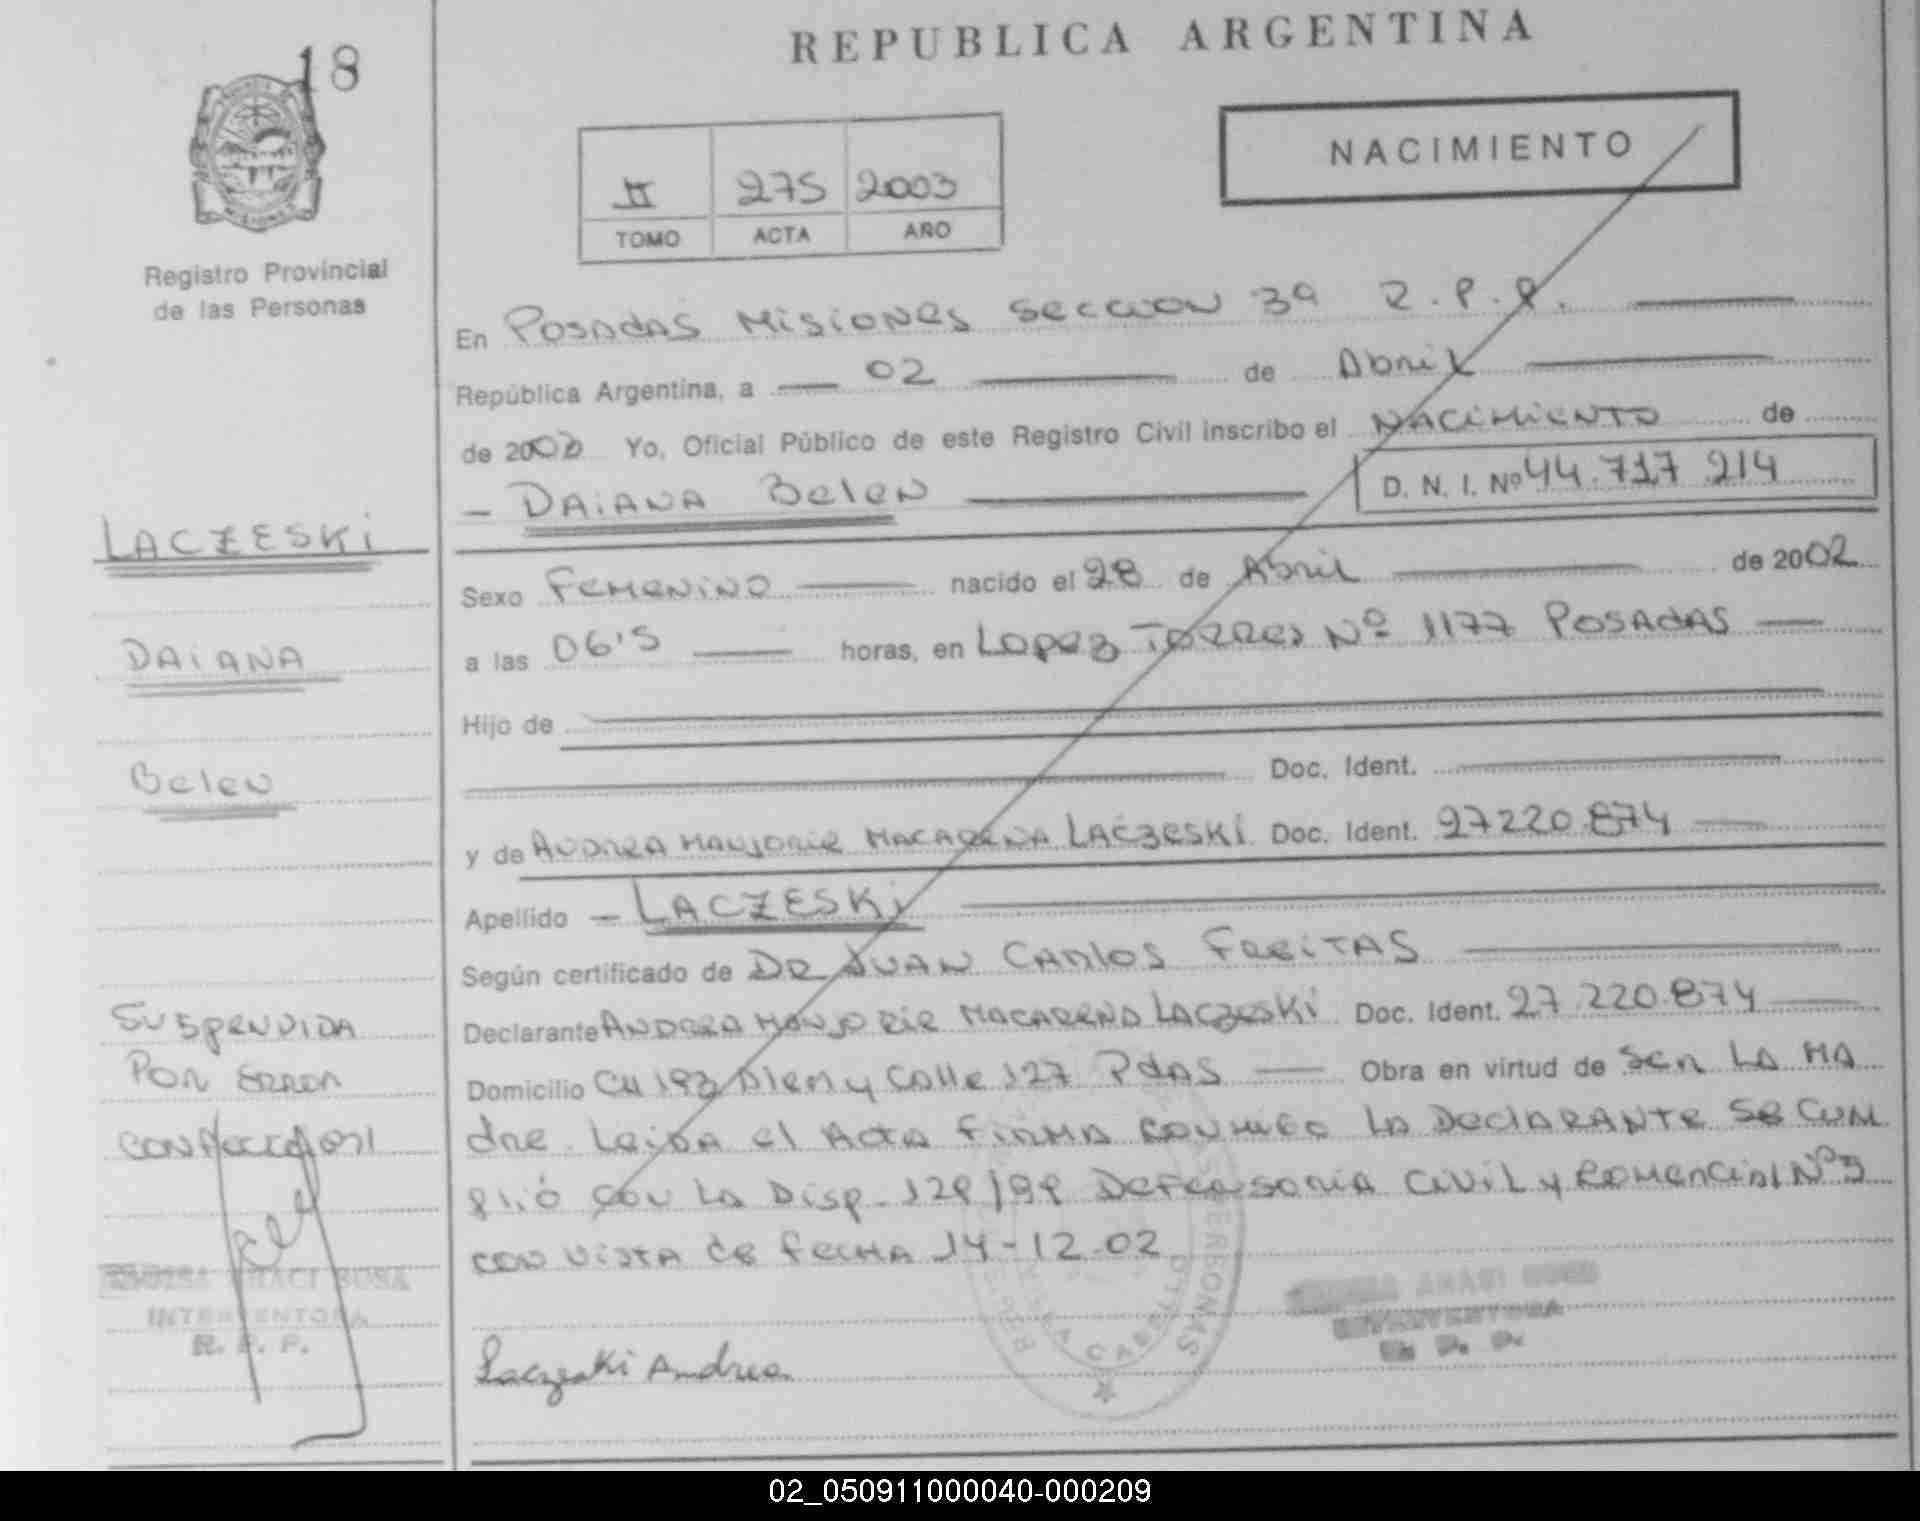 18
Registro Provincial
de las Personas
LACZESKI
DAIANA
Belen
SUSPENDIDA
POR ERROR
INTERVENTORA
R. P. P.
REPUBLICA ARGENTINA
NACIMIENTO
II 275 2003
TOMO ACTA AÑO
En POSADAS MISIONES SECCION 3a R.P.P.
República Argentina, a 02 de Abril
de 2003 Yo, Oficial Público de este Registro Civil inscribo el NACIMIENTO de
DAIANA Belen D. N. I. Nº 44.717.214
Sexo FEMENINO nacido el 28 de Abril de 2002
a las 06'5 horas, en LOPEZ TORRES Nº 1177 POSADAS
Hijo de
Doc. Ident.
y de ANDREA MARJORIE MACARENA LACZESKI Doc. Ident. 27220.874
Apellido LACZESKI
Según certificado de DR JUAN CARLOS FREITAS
Declarante ANDREA MARJORIE MACARENA LACZESKI Doc. Ident. 27.220.874
Domicilio CH 193 Alem y Calle 127 PdAS Obra en virtud de Ser LA MA
dre. Leida el Acta FIRMA CONMIGO LA DECLARANTE SE CUM
PLIÓ CON LA Disp. 129/99 DEFENSORIA CIVIL y COMERCIAL Nº 3
CON VISTA de FECHA 14-12-02
Laczeski Andrea
02_050911000040-000209